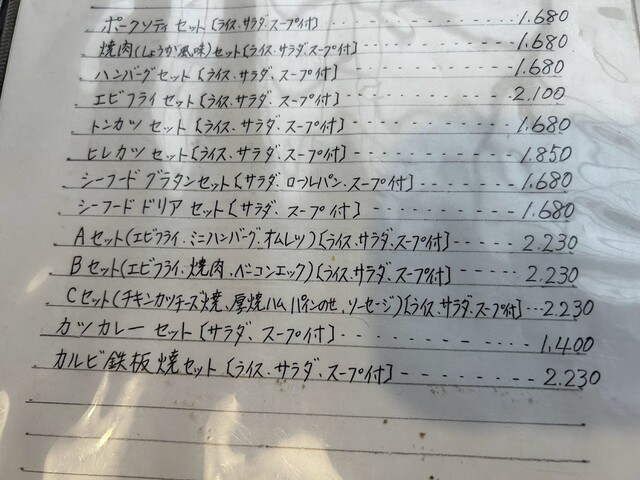 ポークソティセット〔ライス、サラダ、スープ付〕 1.680
焼肉(しょうが風味)セット〔ライス、サラダ、スープ付〕 1.680
ハンバーグセット〔ライス、サラダ、スープ付〕 1.680
エビフライセット〔ライス、サラダ、スープ付〕 2.100
トンカツセット〔ライス、サラダ、スープ付〕 1.680
ヒレカツセット〔ライス、サラダ、スープ付〕 1.850
シーフードグラタンセット〔サラダ、ロールパン、スープ付〕 1.680
シーフードドリアセット〔サラダ、スープ付〕 1.680
Aセット(エビフライ、ミニハンバーグ、オムレツ)〔ライス、サラダ、スープ付〕 2.230
Bセット(エビフライ、焼肉、ベーコンエッグ)〔ライス、サラダ、スープ付〕 2.230
Cセット(チキンカツチーズ焼、厚焼ハムパインのせ、ソーセージ)〔ライス、サラダ、スープ付〕 2.230
カツカレーセット〔サラダ、スープ付〕 1.400
カルビ鉄板焼セット〔ライス、サラダ、スープ付〕 2.230